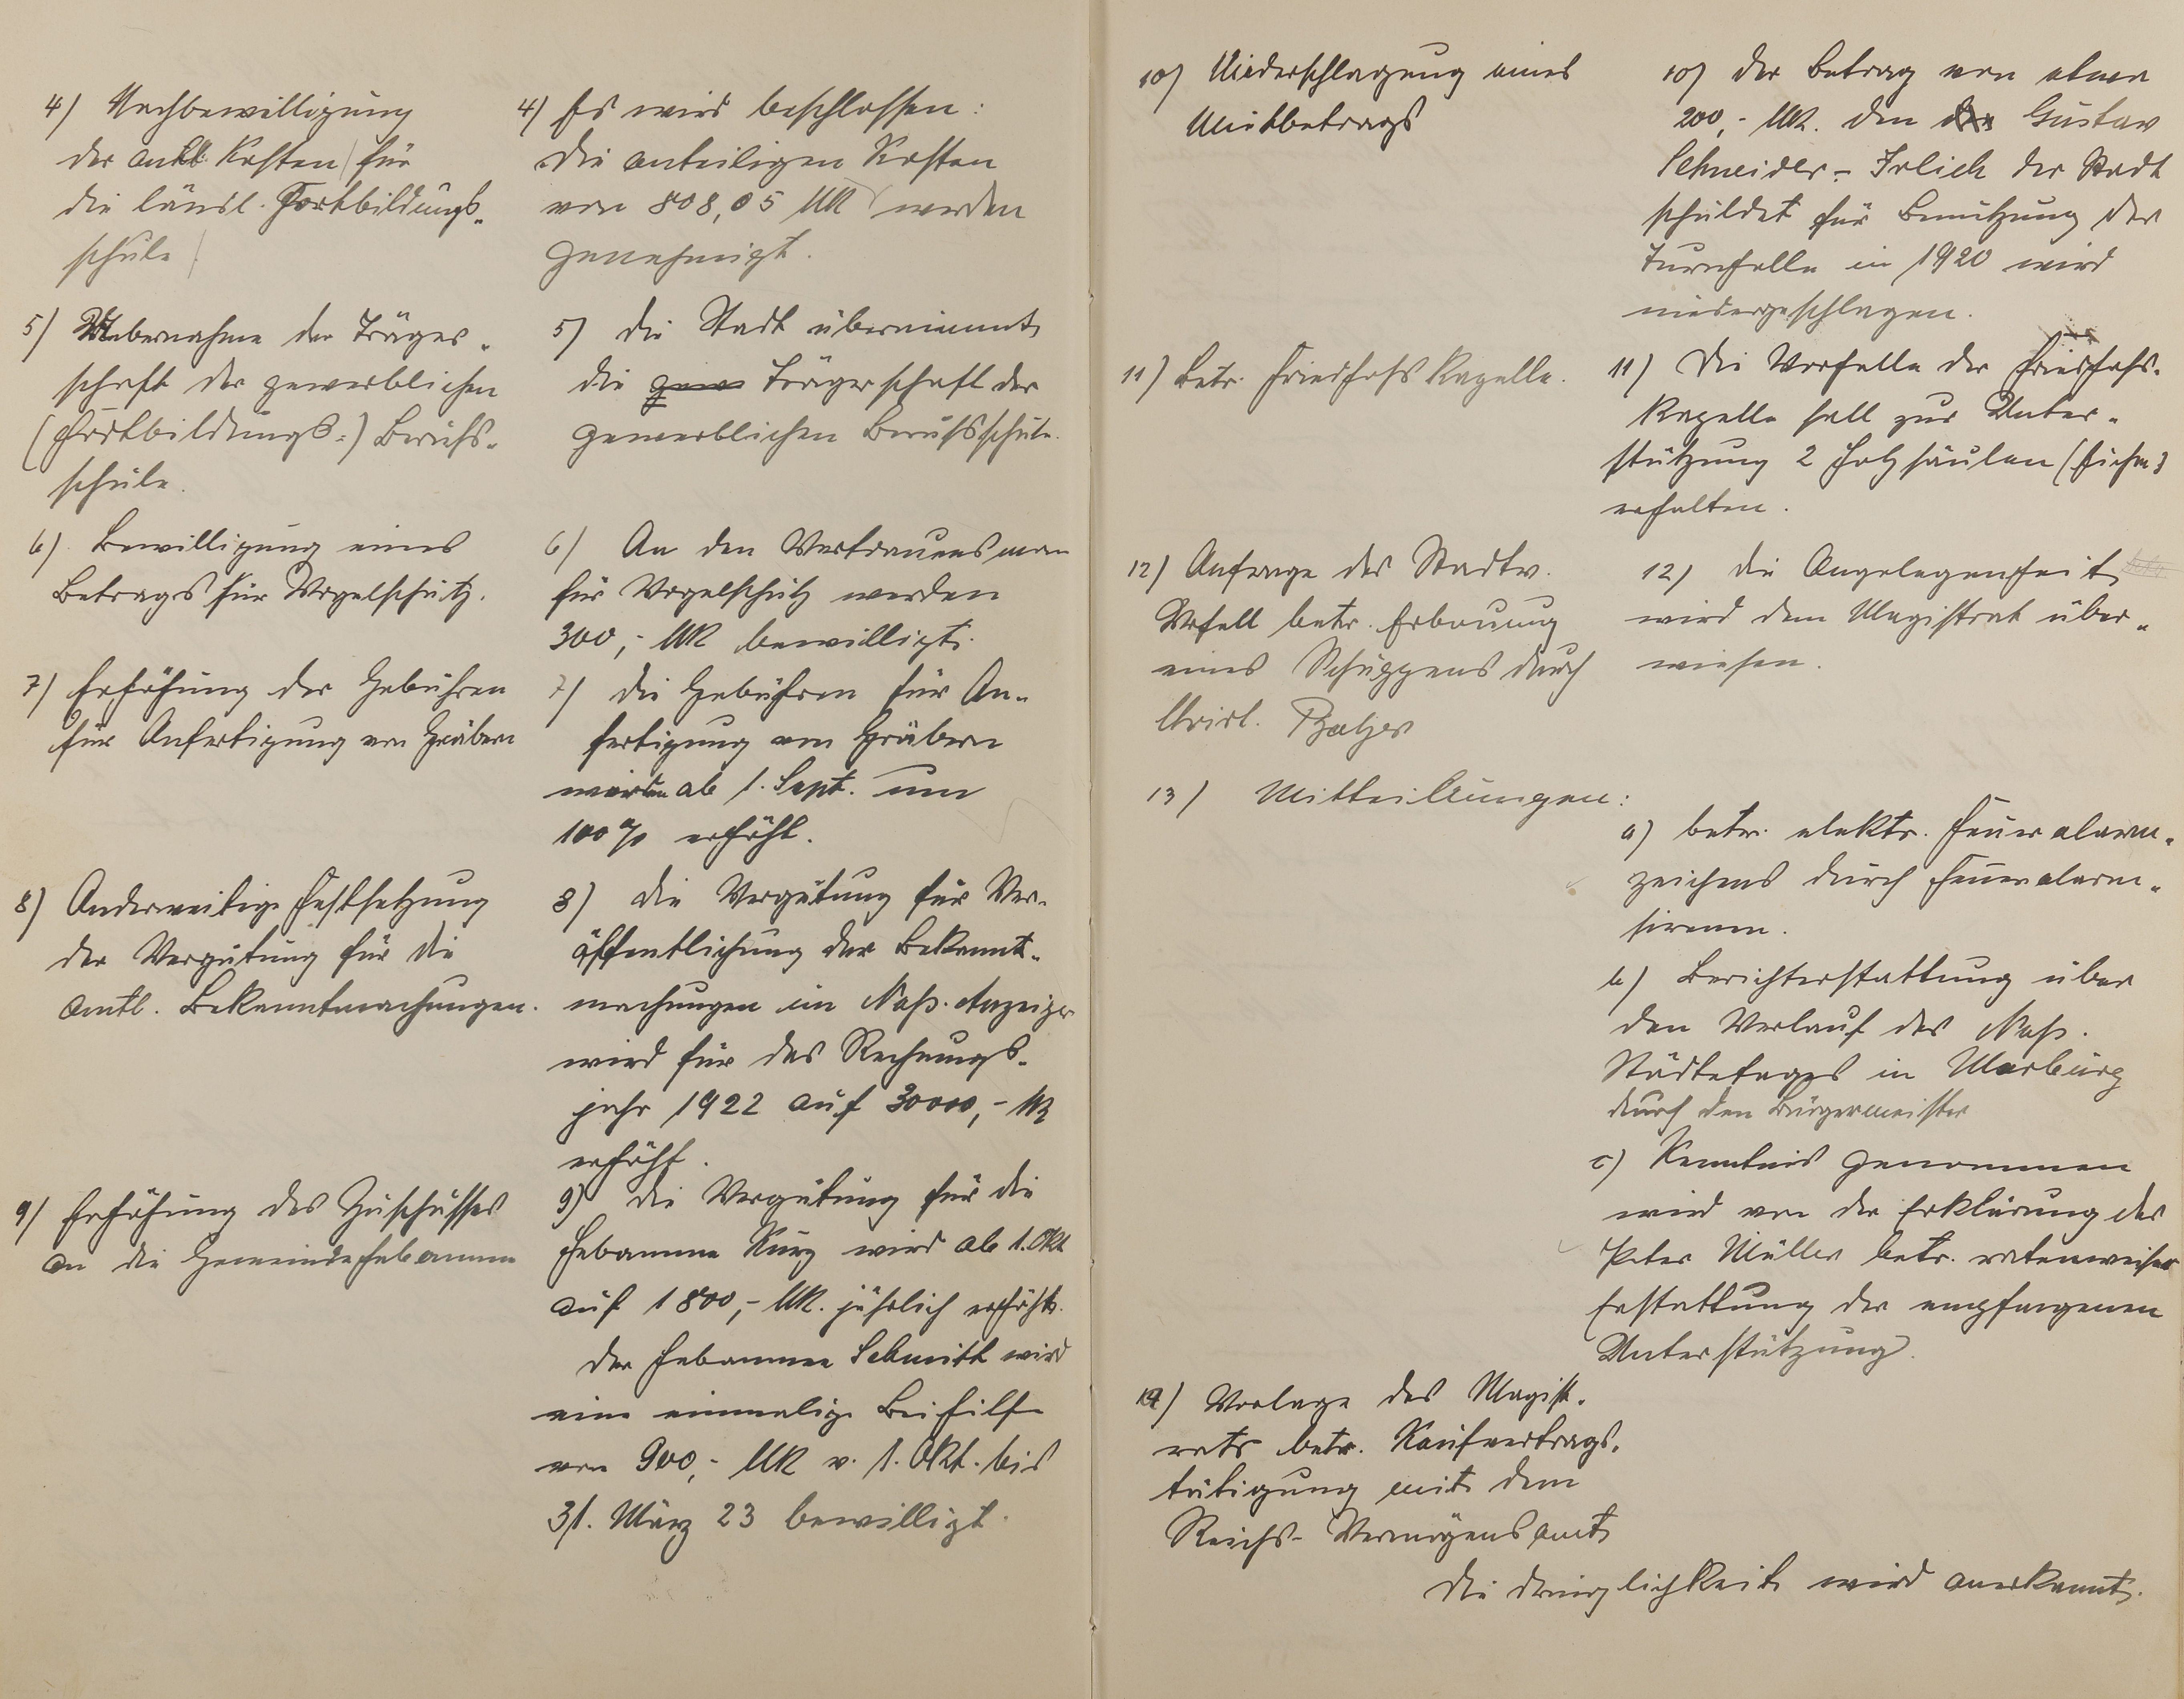 4) Nachbewilligung
der antl. Kosten für
die ländl. Fortbildungs-
schule
4) Es wird beschlossen:
Die anteiligen Kosten
von 808,05 Mk werden
genehmigt.
5) Uebernahme der Träger-
schaft der gewerblichen
(Fortbildungs-) Berufs-
schule.
5) Die Stadt übernimmt
die gew Trägerschaft der
gewerblichen Berufsschule.
6) Bewilligung eines
Betrags für Vogelschutz.
6) An den Vertrauensmann
für Vogelschutz werden
300,- Mk bewilligt.
7) Erhöhung der Gebühren
für Anfertigung von Gräbern
7) Die Gebühren für An-
fertigung von Gräbern
werden ab 1. Sept. um
100% erhöht.
8) Anderweitige Festsetzung
der Vergütung für die
amtl. Bekanntmachungen.
8) Die Vergütung für Ver-
öffentlichung der Bekannt-
machungen im Nass. Anzeiger
wird für das Rechnungs-
jahr 1922 auf 30000,- M
erhöht.
9) Erhöhung des Zuschusses
an die Gemeindehebamme
9) Die Vergütung für die
Hebamme Kurz wird ab 1. Okt
auf 1800,- Mk. jährlich erhöht.
Der Hebamme Schmitt wird
eine einmalige Beihilfe
von 900,- Mk v. 1. Okt. bis
31. März 23 bewilligt.
10) Niederschlagung eines
Mietbetrags
10) Der Betrag von etwa
200,- Mk. den Gustav
Schneider - Irlich der Stadt
schuldet für Benutzung der
Turnhalle in 1920 wird
niedergeschlagen.
11) Betr. Friedhofs Kapelle.
11) Die Vorhalle der Friedhofs-
kapelle soll zur Unter-
stützung 2 Holzsäulen (Eichen)
erhalten.
12) Anfrage des Stadtv.
betr. Erbauung
eines Schuppens durch
Christ. Balzer
12) Die Angelegenheit
wird dem Magistrat über-
wiesen.
13) Mitteilungen:
a) betr. elektr. Feueralarm-
zeichens durch Feueralarm-
sirenen.
b) Berichterstattung über
den Verlauf des Nass.
Städtetages in Marburg
durch den Bürgermeister
c) Kenntnis genommen
wird von der Erklärung des
Peter Müller betr. ratenweiser
Erstattung der empfangenen
Unterstützung.
14) Vorlage des Magist-
rats betr. Kaufvertrags-
tätigung mit dem
Reichs-Vermögensamt
Die Dringlichkeit wird anerkannt.